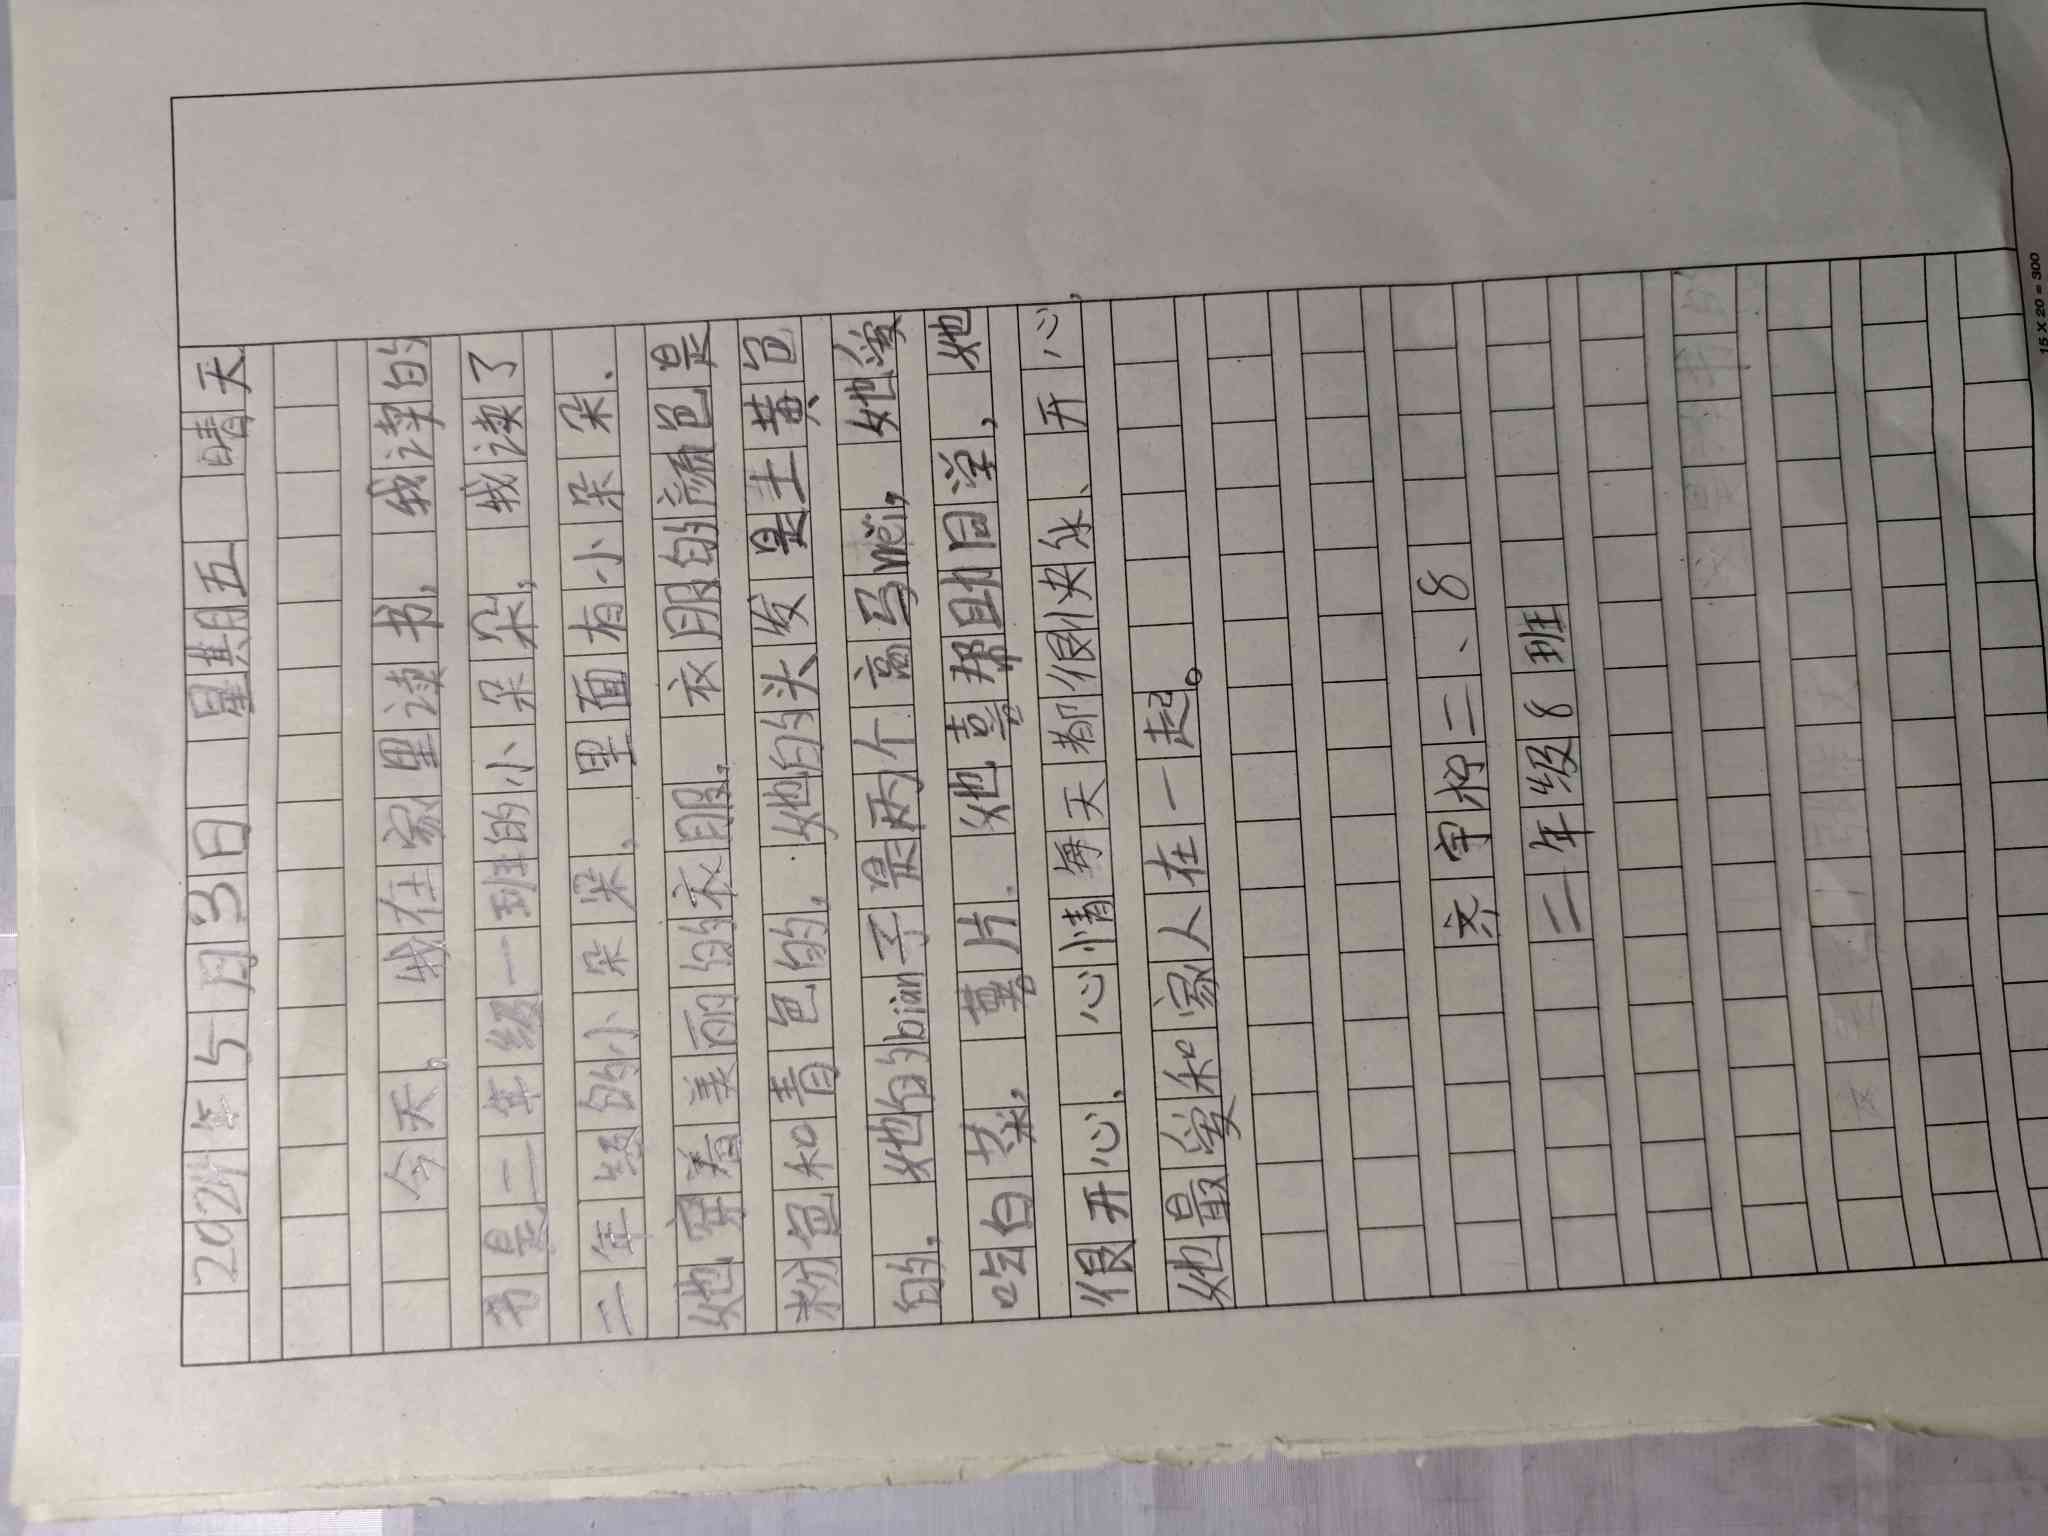 2024年5月3日 星期五 晴天
今天，我在家里读书，我读的
书是二年级一班的小朵朵，我读了
二年级的小朵朵，里面有小朵朵.
她穿着美丽的衣服，衣服的颜色是
粉色和青色的，她的头发是土黄色
的，她的bian子是两个高马wěi，她爱
吃白菜，薯片.她喜帮助同学，她
很开心、心情每天都很快乐、开心，
她最爱和家人在一起。
二、8
二年级8班
15 X 20 = 300